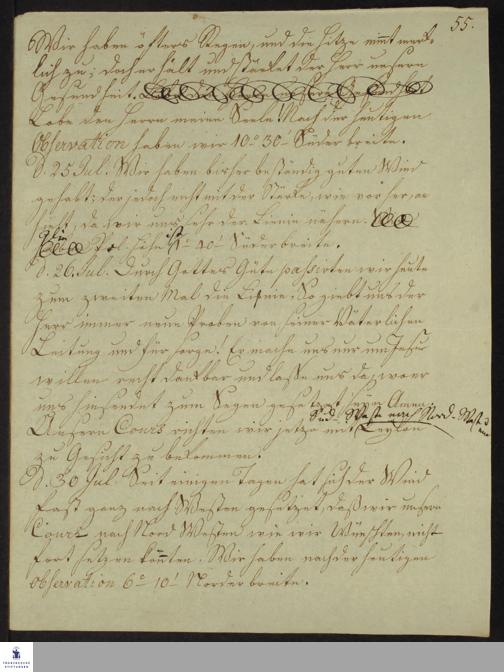 55.
Wir haben öfters Regen, und die Hitze nimt merk-
lich zu; doch erhält und stärket der Herr unsern
Gesundheit.
Lobe den Herrn meine Seele! Nach der heutigen
Observation haben wir 10° 30' Süder breite.
d. 25 Jul. Wir haben bisher beständig guten Wind
gehabt; der jedoch nicht mit der Stärke, wie vorher,
da wir uns sehr der Linie nähern.
ist 1° 40' Süderbreite.
d. 26. Jul. Durch Gottes Güte passirten wir heute
zum zweiten Mal die Linie. So giebt uns der
Herr immer neue Proben von seiner Väterlichen
Leitung und für sorge! Er mache uns nur um Jesu
willen recht dankbar und lasse uns da, wo er
uns hinsendet zum Segen gesetzet seyn Amen.
Süd-West nach Nord-West
Unsern Cours richten wir jetzo mit Ceylon
zu Gesicht zu bekommen.
d. 30 Jul. Seit einigen Tagen hat sich der Wind
fast ganz nach Westen gesetzet, daß wir unsern
Cours nach Nord Westen wie wir Wünschten, nicht
fort setzen könten. Wir haben nach der heutigen
Observation 6° 10' Norder breite.
FRANCKESCHE
STIFTUNGEN